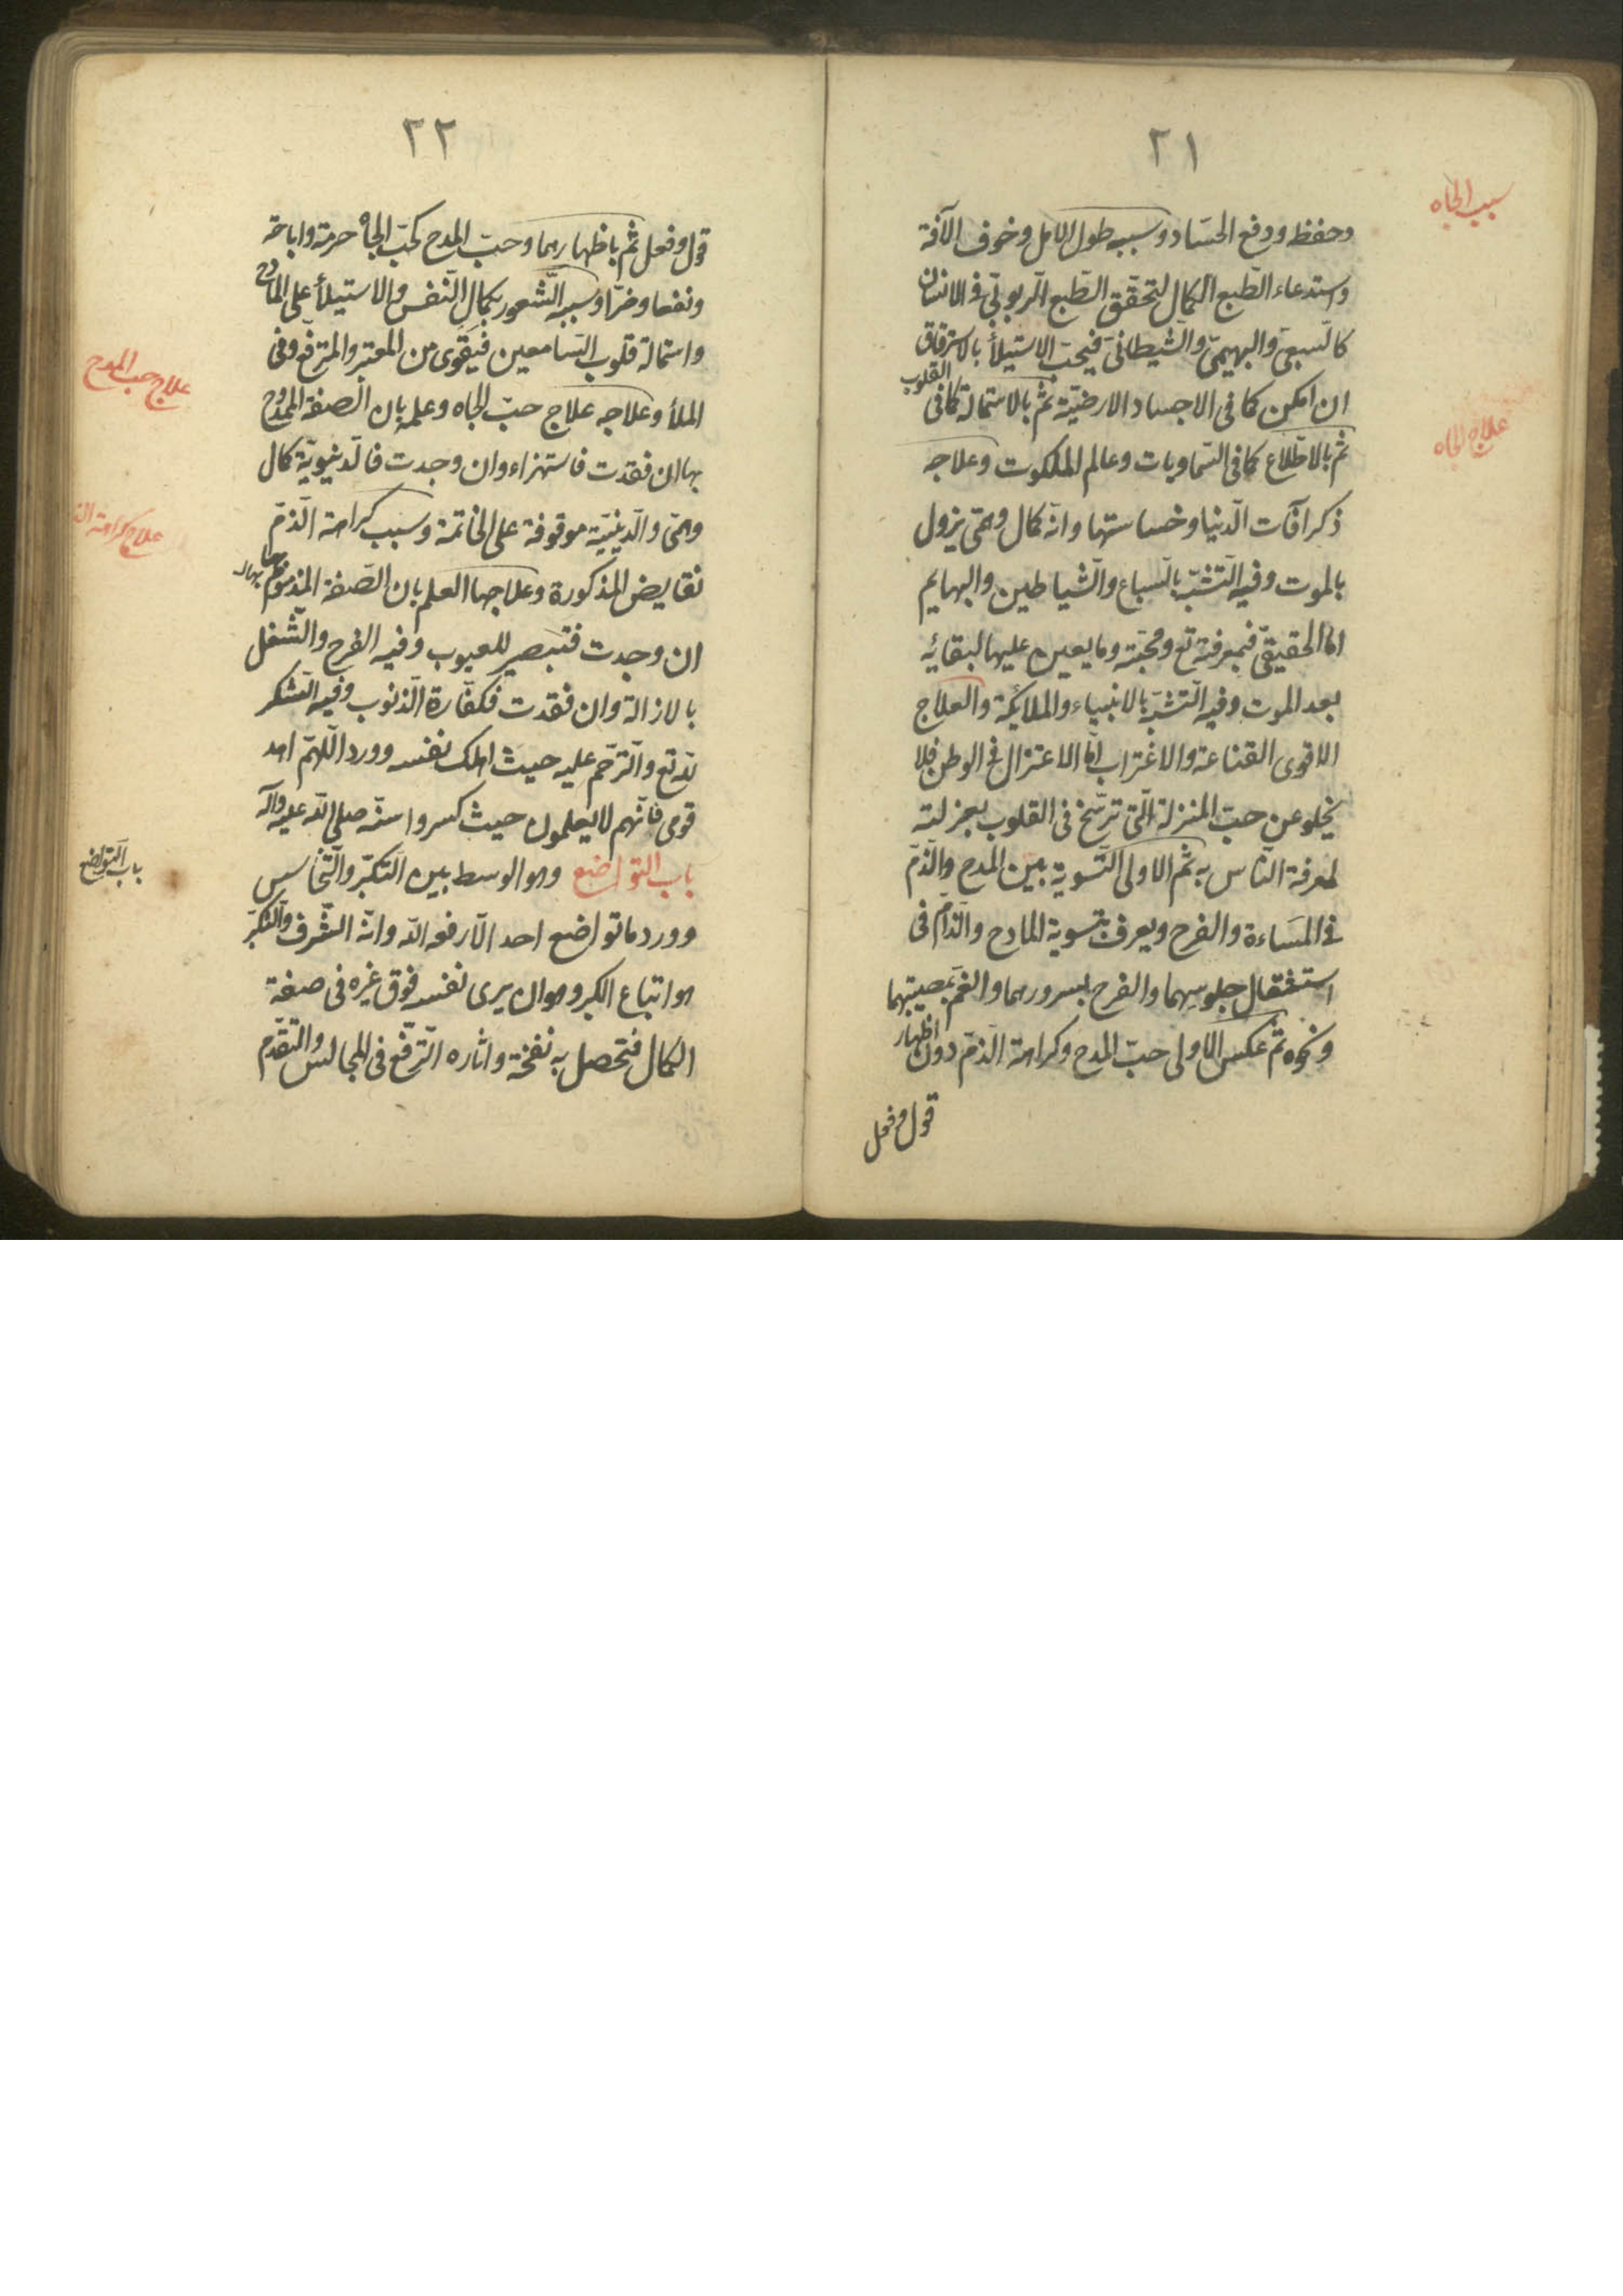 ٢١
سبب الجاه
وحفظ ودفع الحسّاد وسببه طول الامل وخوف الآفة
واستدعاء الطّبع الكمال لتحقّق الطّبع الرّبوبيّ فى الانسان
كالسّبعىّ والبهيمىّ والشّيطانىّ فيحبّ الاستيلأ بالاسترقاق
ان امكن كما فى الاجساد الارضيّة ثمّ بالاستمالة كما فى القلوب
علاج الجاه
ثمّ بالاطّلاع كما فى السّماويات وعالم الملكوت وعلاجه
ذكر آفات الدّنيا وخساستها وانّه كمال وهمّى يزول
بالموت وفيه التّشبّه بالسّباع والشّياطين والبهايم
امّا الحقيقىّ فبمعرفته تع ومحبّته وما يعين عليها لبقائه
بعد الموت وفيه التّشبّه بالانبياء والملائكة والعلاج
الاقوى القناعة والاغتراب امّا الاعتزال فى الوطن فلا
يخلو عن حبّ المنزلة الّتى ترسّخ فى القلوب بعزلته
لمعرفة النّاس به ثمّ الاولى التّسوية بين المدح والذّمّ
فى المساءة والفرح ويعرف بتسوية المادح والذّامّ فى
استثقال جلوسهما والفرح بسرورهما والغمّ بمصيبتهما
ونحوه ثمّ عكس الاولى حبّ المدح وكراهة الذّمّ دون اظهار
قول وفعل
٢٢
قول وفعل ثمّ باظهارهما وحبّ المدح كحبّ الجاه حرمة واباحة
ونفعا وضرّا وسببه الشّعور بكمال النّفس والاستيلأ على المادح
واستمالة قلوب السّامعين فيقوى من المعتبر والمترفّع وفى
علاج حب المدح
الملأ وعلاجه علاج حبّ الجاه وعلمه بان الصفة الممدوح
بها ان فقدت فاستهزاء وان وجدت فالدّنيويّة كمال
وهمّى والدّينيّة موقوفة على الخاتمة وسبب كراهة الذّمّ
علاج كراهة الذ
نقايض المذكورة وعلاجها العلم بان الصّفة المذموم بها
ان وجدت فتبصير للعيوب وفيه الفرح والشّغل
بالازالة وان فقدت فكفّارة الذّنوب وفيه الشّكر
لله تع والتّرحّم عليه حيث اهلك نفسه وورد اللّهمّ اهد
قومى فانّهم لا يعلمون حيث كسروا سنّه صلى اللّه عليه وآله
باب التّواضع
باب التواضع وهو الوسط بين التّكبّر والتّخاسس
وورد ما تواضع احد الّا رفعه اللّه وانّه الشّرف والتّكبّر
هو اتباع الكبر وهو ان يرى نفسه فوق غيره فى صفة
الكمال فتحصل به نفخة واثاره التّرفّع فى المجالس والتّقدّم